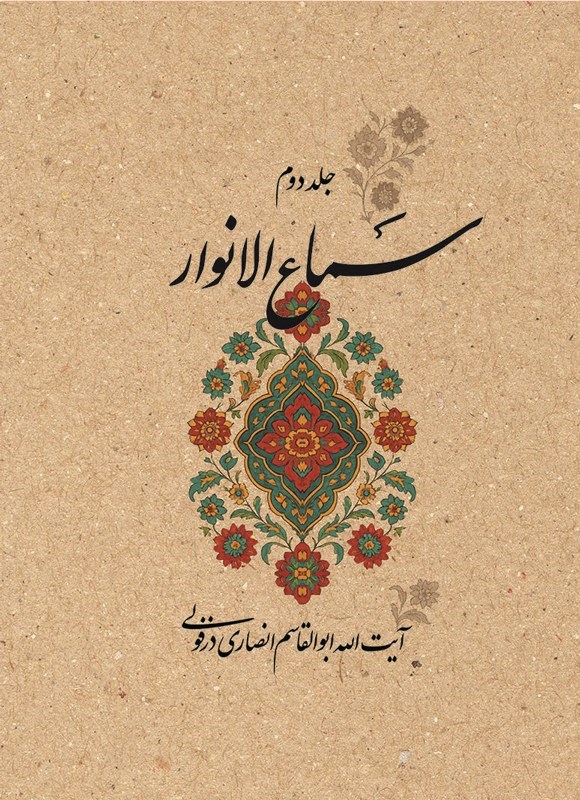 جلد دوم
سَماع الانوار
آیت الله ابوالقاسم انصاری دزفولی